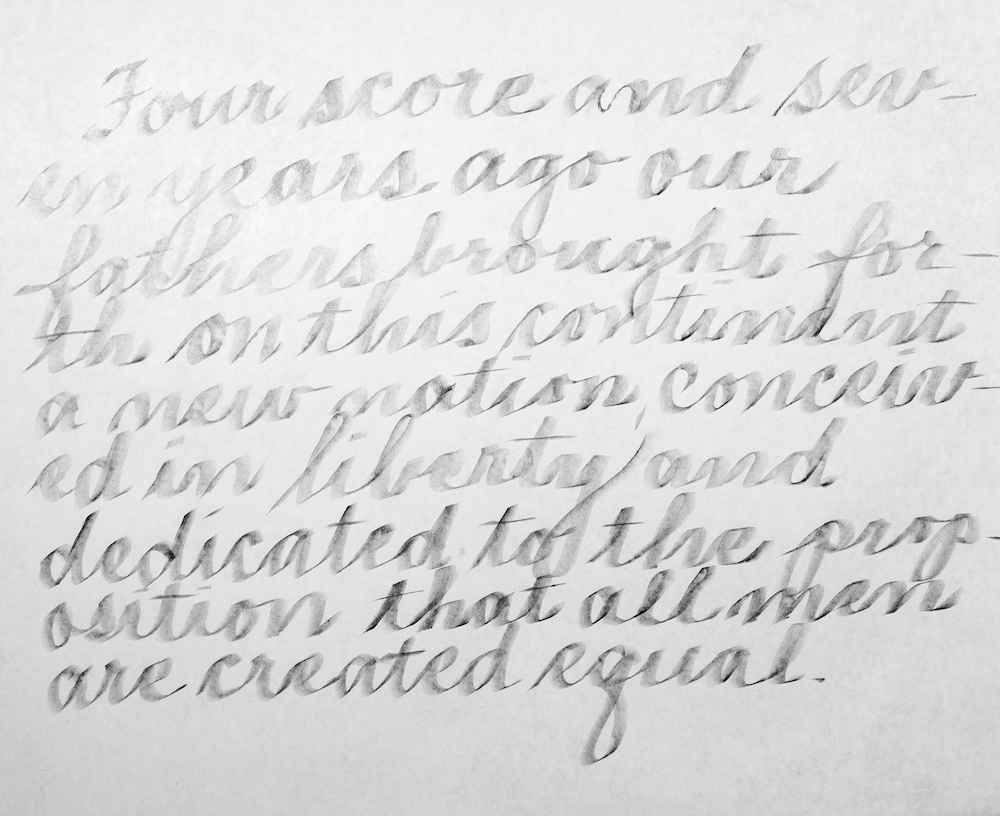 Four score and sev-
en years ago our
fathers brought for-
th on this continent
a new nation, conceiv-
ed in liberty, and
dedicated to the prop-
osition that all men
are created equal.